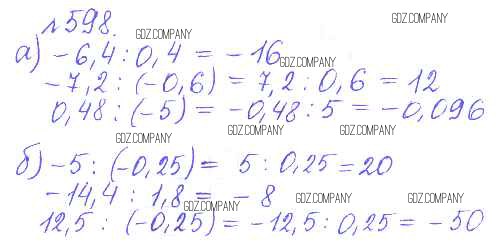 №598. GDZ.COMPANY
GDZ.COMPANY
а) -6,4 : 0,4 = -16 GDZ.COMPANY
-7,2 : (-0,6) = 7,2 : 0,6 = 12
0,48 : (-5) = -0,48 : 5 = -0,096
GDZ.COMPANY GDZ.COMPANY GDZ.COMPANY
б) -5 : (-0,25) = 5 : 0,25 = 20
-14,4 : 1,8 = - 8 GDZ.COMPANY GDZ.COMPANY GDZ.COMPANY
12,5 : (-0,25) = -12,5 : 0,25 = -50